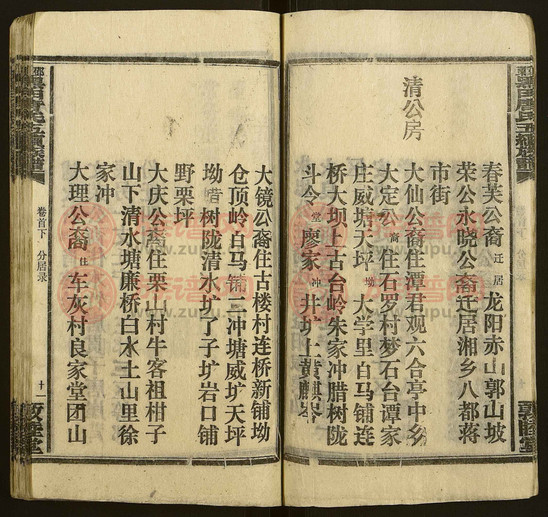 春芙公裔迁居龙阳赤山郭山坡
荣公永晓公裔迁居湘乡八都蒋
市街
清公房
大仙公裔住潭君观六合亭中乡
大定公裔住石罗村梦石台谭家
庄威塘天坪坳大学里白马铺连
桥大坝上古台岭朱家冲腊树陇
斗令堂廖家冲井圹上黄麒峇
大镜公裔住古楼村连桥新铺坳
仓顶岭白马铺三冲塘威圹天坪
坳树陇清水圹了子圹岩口铺
野栗坪
大庆公裔住栗山村牛客祖柑子
山下清水塘廉桥白水土山里徐
家冲
大理公裔住车灰村良家堂团山
卷首下 分居录
十一
敦睦堂